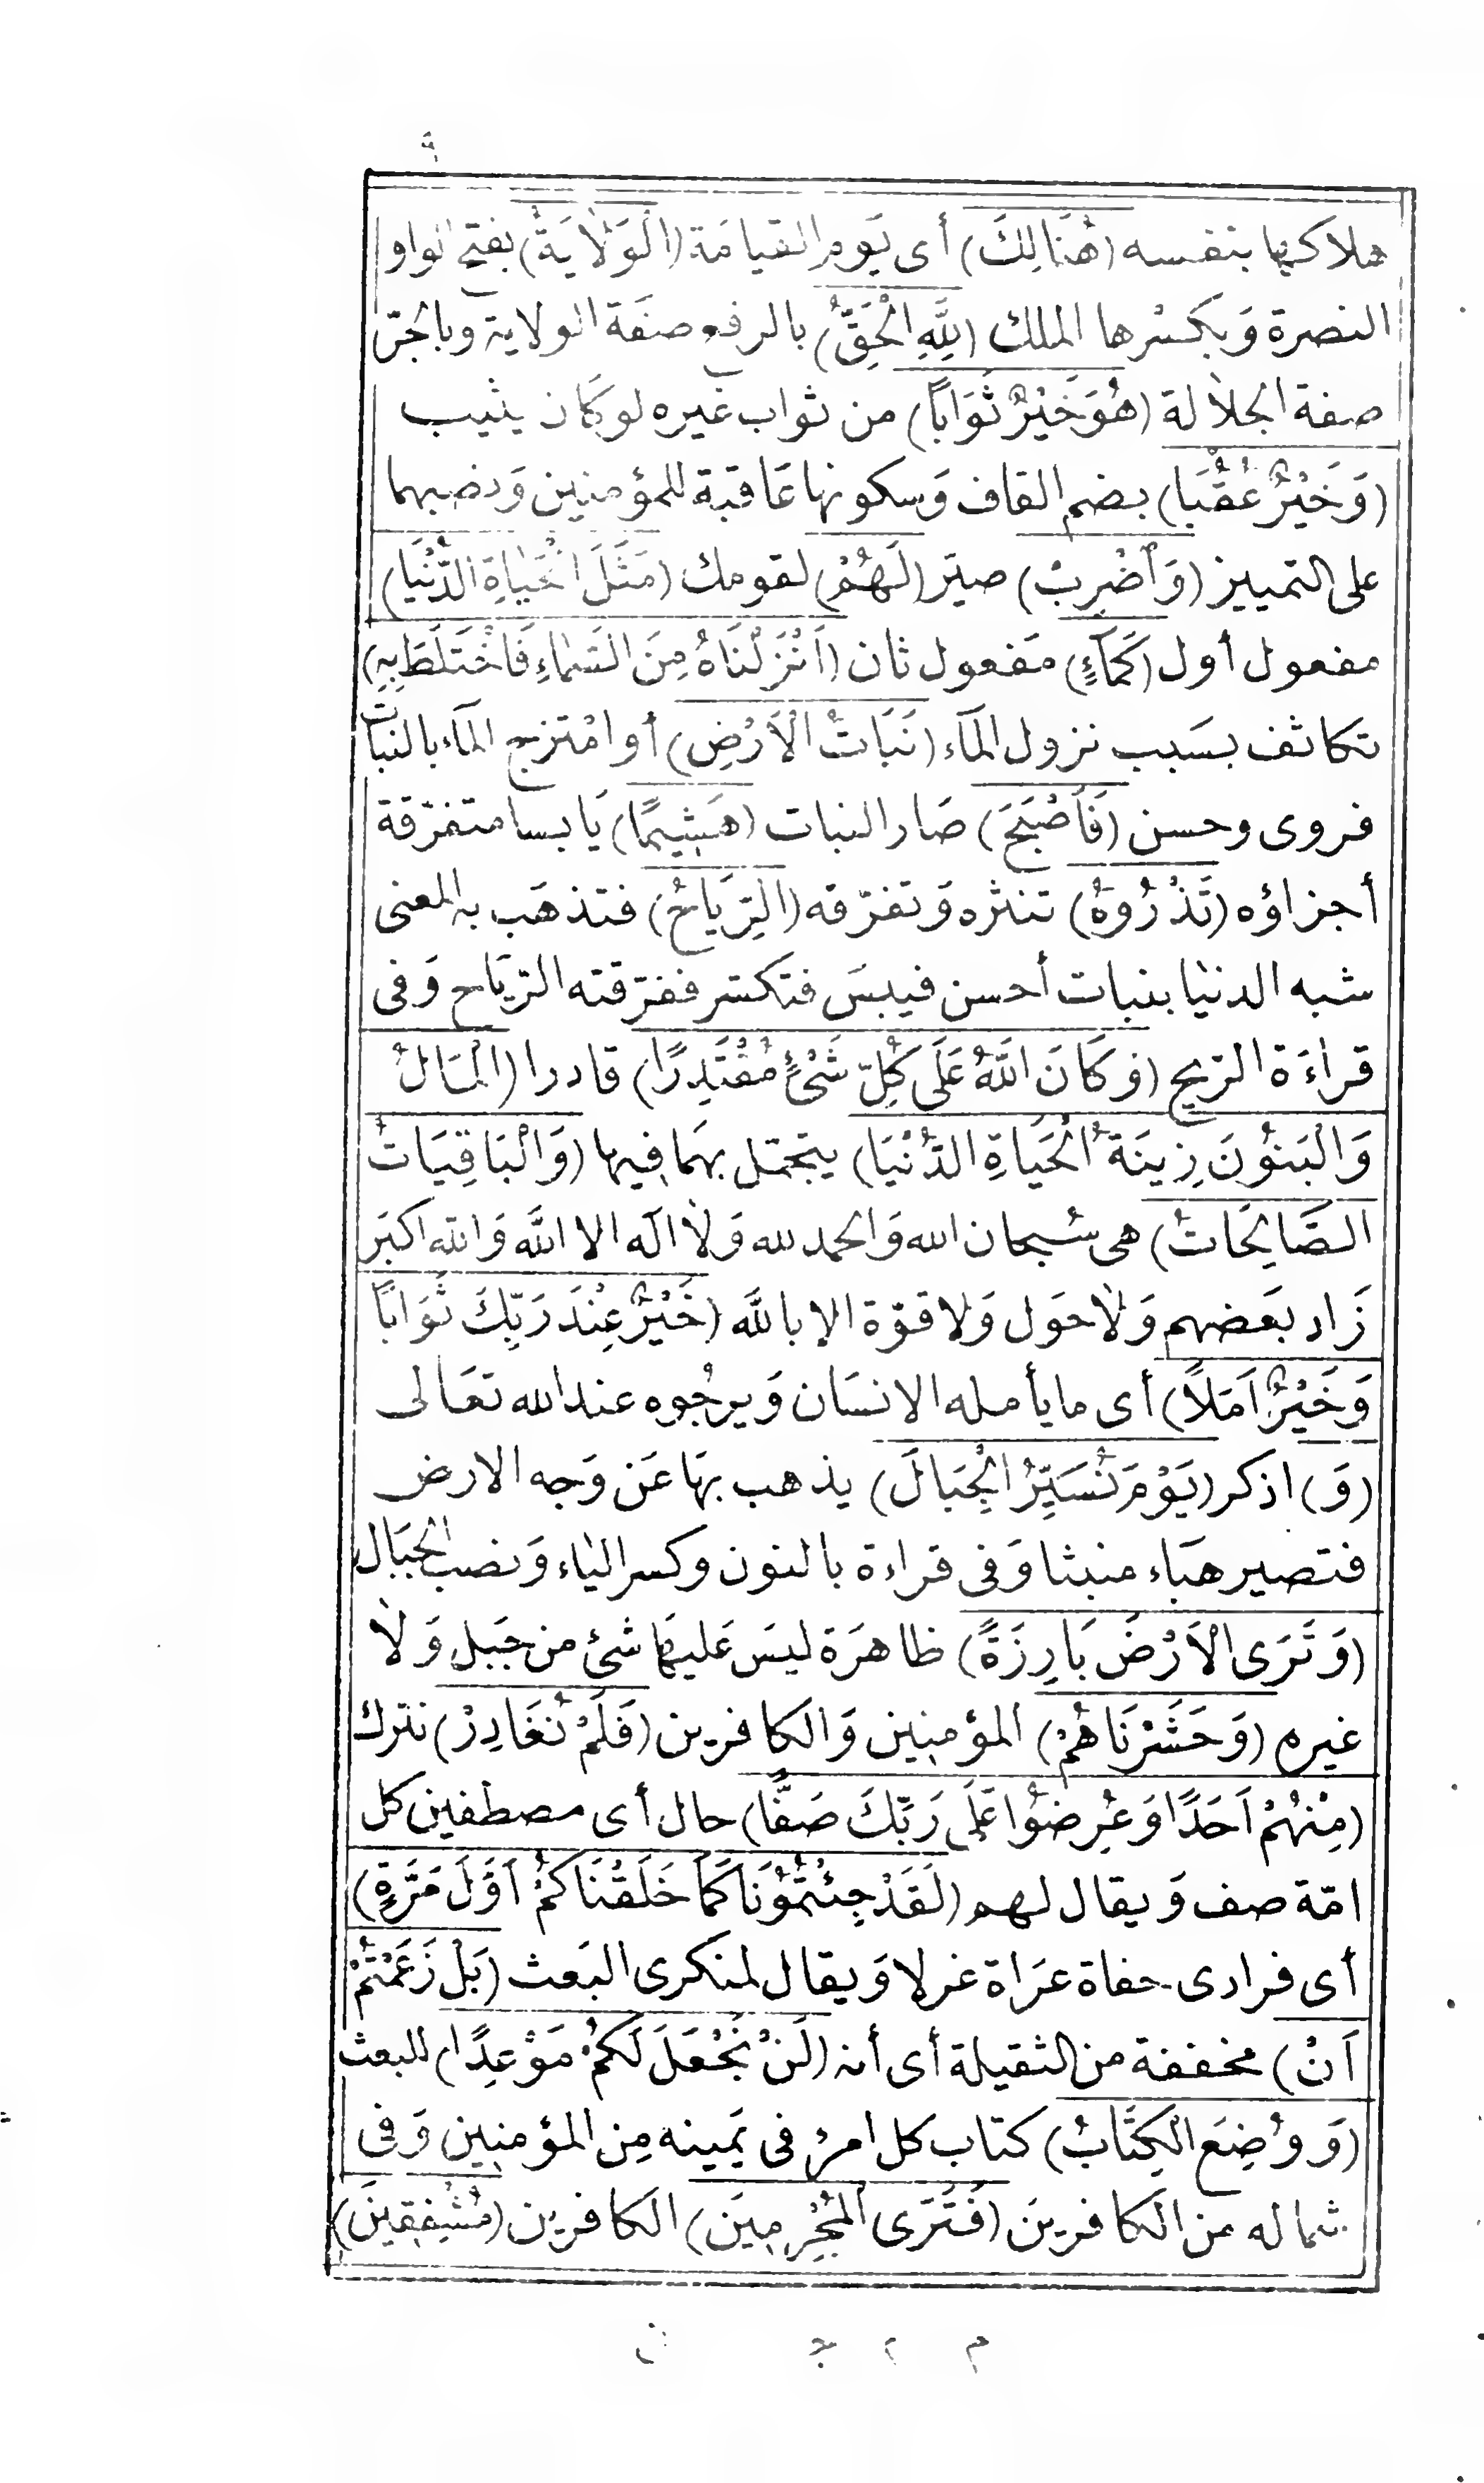 ٩
هلاكها بنفسه (هُنَالِكَ) أى يَوم القيامَة (الْوَلَايَةُ) بفتح الواو
النصرة وَبكسْرها الملك (لِلَّهِ الْحَقُّ) بالرفع صفَة الولاية وبالجرّ
صفة الجلالة (هُوَ خَيْرٌ ثَوَابًا) من ثواب غيره لو كَان يثيب
(وَخَيْرٌ عُقْبًا) بضم القاف وَسكونها عَاقبة للمؤمنين وَنصبهما
على التمييز (وَاضْرِبْ) صيّر (لَهُمْ) لقومك (مَثَلَ الْحَيَاةِ الدُّنْيَا)
مفعول أول (كَمَآءٍ) مَفعول ثان (اَنْزَلْنَاهُ مِنَ السَّمَاءِ فَاخْتَلَطَ بِهِ)
تكاثف بسَبب نزول المَآء (نَبَاتُ الْاَرْضِ) أو امْتزج المَآء بالنبات
فروى وحسن (فَاَصْبَحَ) صَار النبات (هَشِيمًا) يَابسا متفرّقة
أجزاؤه (تَذْرُوهُ) تنثره وَتفرّقه (الرِّيَاحُ) فتذهَب به المعنى
شبه الدنيا بنبات أحسن فيبسَ فتكسّر ففرّقته الرّيَاح وَفى
قراءَة الرّيح (وَكَانَ اللَّهُ عَلَى كُلِّ شَىْءٍ مُقْتَدِرًا) قادرا (الْمَالُ
وَالْبَنُونَ زِينَةُ الْحَيَاةِ الدُّنْيَا) يتجمّل بهمَا فيها (وَالْبَاقِيَاتُ
الصَّالِحَاتُ) هى سُبحان الله وَالحمد لله وَلا اله الا اللَّه وَالله اكبَر
زَاد بعَضهم وَلاحوَل وَلا قوّة الا باللَّه (خَيْرٌ عِنْدَ رَبِّكَ ثَوَابًا
وَخَيْرٌ اَمَلاً) أى ما يأمله الانسَان وَيرجُوه عند الله تعَالى
(وَ) اذكر (يَوْمَ نُسَيِّرُ الْجِبَالَ) يذهب بهَا عَن وَجه الارض
فتصير هبَاء منبثا وَفى قراءة بالنون وكسر الياء وَنصب الجبَال
(وَتَرَى الْاَرْضَ بَارِزَةً) ظاهرَة ليسَ عَليهَا شئ من جَبل وَلا
غيره (وَحَشَرْنَاهُمْ) المؤمنين وَالكافرين (فَلَمْ نُغَادِرْ) نترك
(مِنْهُمْ اَحَدًا وَعُرِضُوا عَلَى رَبِّكَ صَفًّا) حال أى مصطفين كل
امّة صف وَيقال لهم (لَقَدْ جِئْتُمُونَا كَمَا خَلَقْنَاكُمْ اَوَّلَ مَرَّةٍ)
أى فرادى حفاة عرَاة غرلا وَيقال لمنكرى البَعث (بَلْ زَعَمْتُمْ
اَنْ) مخففة من الثقيلة أى أنه (لَنْ نَجْعَلَ لَكُمْ مَوْعِدًا) للبعث
(وَوُضِعَ الْكِتَابُ) كتاب كل امرئ فى يَمينه مِن المؤمنين وَفى
شماله من الكافرينَ (فَتَرَى الْمُجْرِمِينَ) الكافرين (مُشْفِقِينَ)